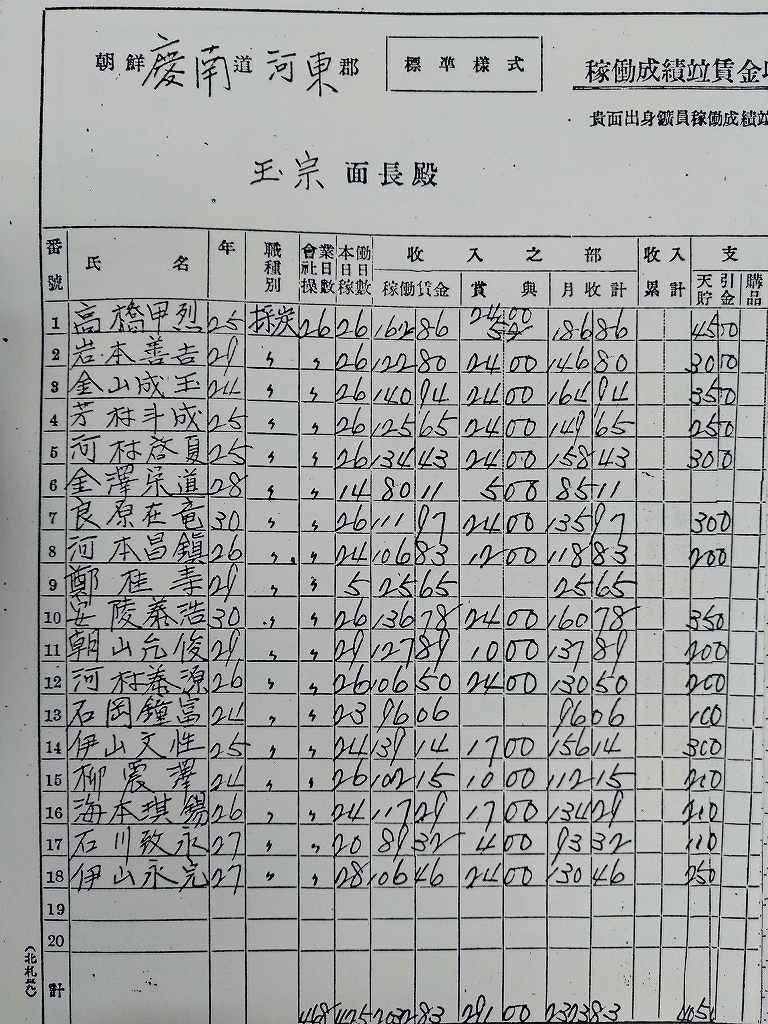 朝鮮慶南道河東郡 標準様式 稼働成績竝賃金
貴面出身鑛員稼働成績竝
玉宗面長殿
番號 氏名 年 職種別 會社操業日數 本日稼働日數 收入之部 收入累計 支
稼働賃金 賞與 月收計 天引貯金 購品
1 高橋甲烈 25 採炭 26 26 162 86 24 00 186 86 45 00
2 岩本善吉 29 〃 〃 26 122 80 24 00 146 80 30 00
3 金山成玉 24 〃 〃 26 140 94 24 00 164 94 35 0
4 芳村斗成 25 〃 〃 26 125 65 24 00 149 65 25 0
5 河村啓夏 25 〃 〃 26 134 43 24 00 158 43 30 0
6 金澤宗道 28 〃 〃 14 80 11 5 00 85 11
7 良原在竜 30 〃 〃 26 111 97 24 00 135 97 30 0
8 河本昌鎮 26 〃 〃 24 106 83 12 00 118 83 20 0
9 鄭桂壽 29 〃 〃 5 25 65 25 65
10 安陵義浩 30 〃 〃 26 136 78 24 00 160 78 35 0
11 朝山允俊 29 〃 〃 29 127 89 10 00 137 89 20 0
12 河村善源 26 〃 〃 26 106 50 24 00 130 50 20 0
13 石岡鐘富 24 〃 〃 23 96 06 96 06 10 0
14 伊山文性 25 〃 〃 24 139 14 17 00 156 14 30 0
15 柳震澤 24 〃 〃 26 102 15 10 00 112 15 20 0
16 海本琪錫 26 〃 〃 24 117 29 17 00 134 29
17 石川致永 27 〃 〃 20 89 32 4 00 93 32
18 伊山永完 27 〃 〃 28 106 46 24 00 130 46 25 0
19
20
計 468 425 2032 83 291 00 2323 83 405
(北札紙)